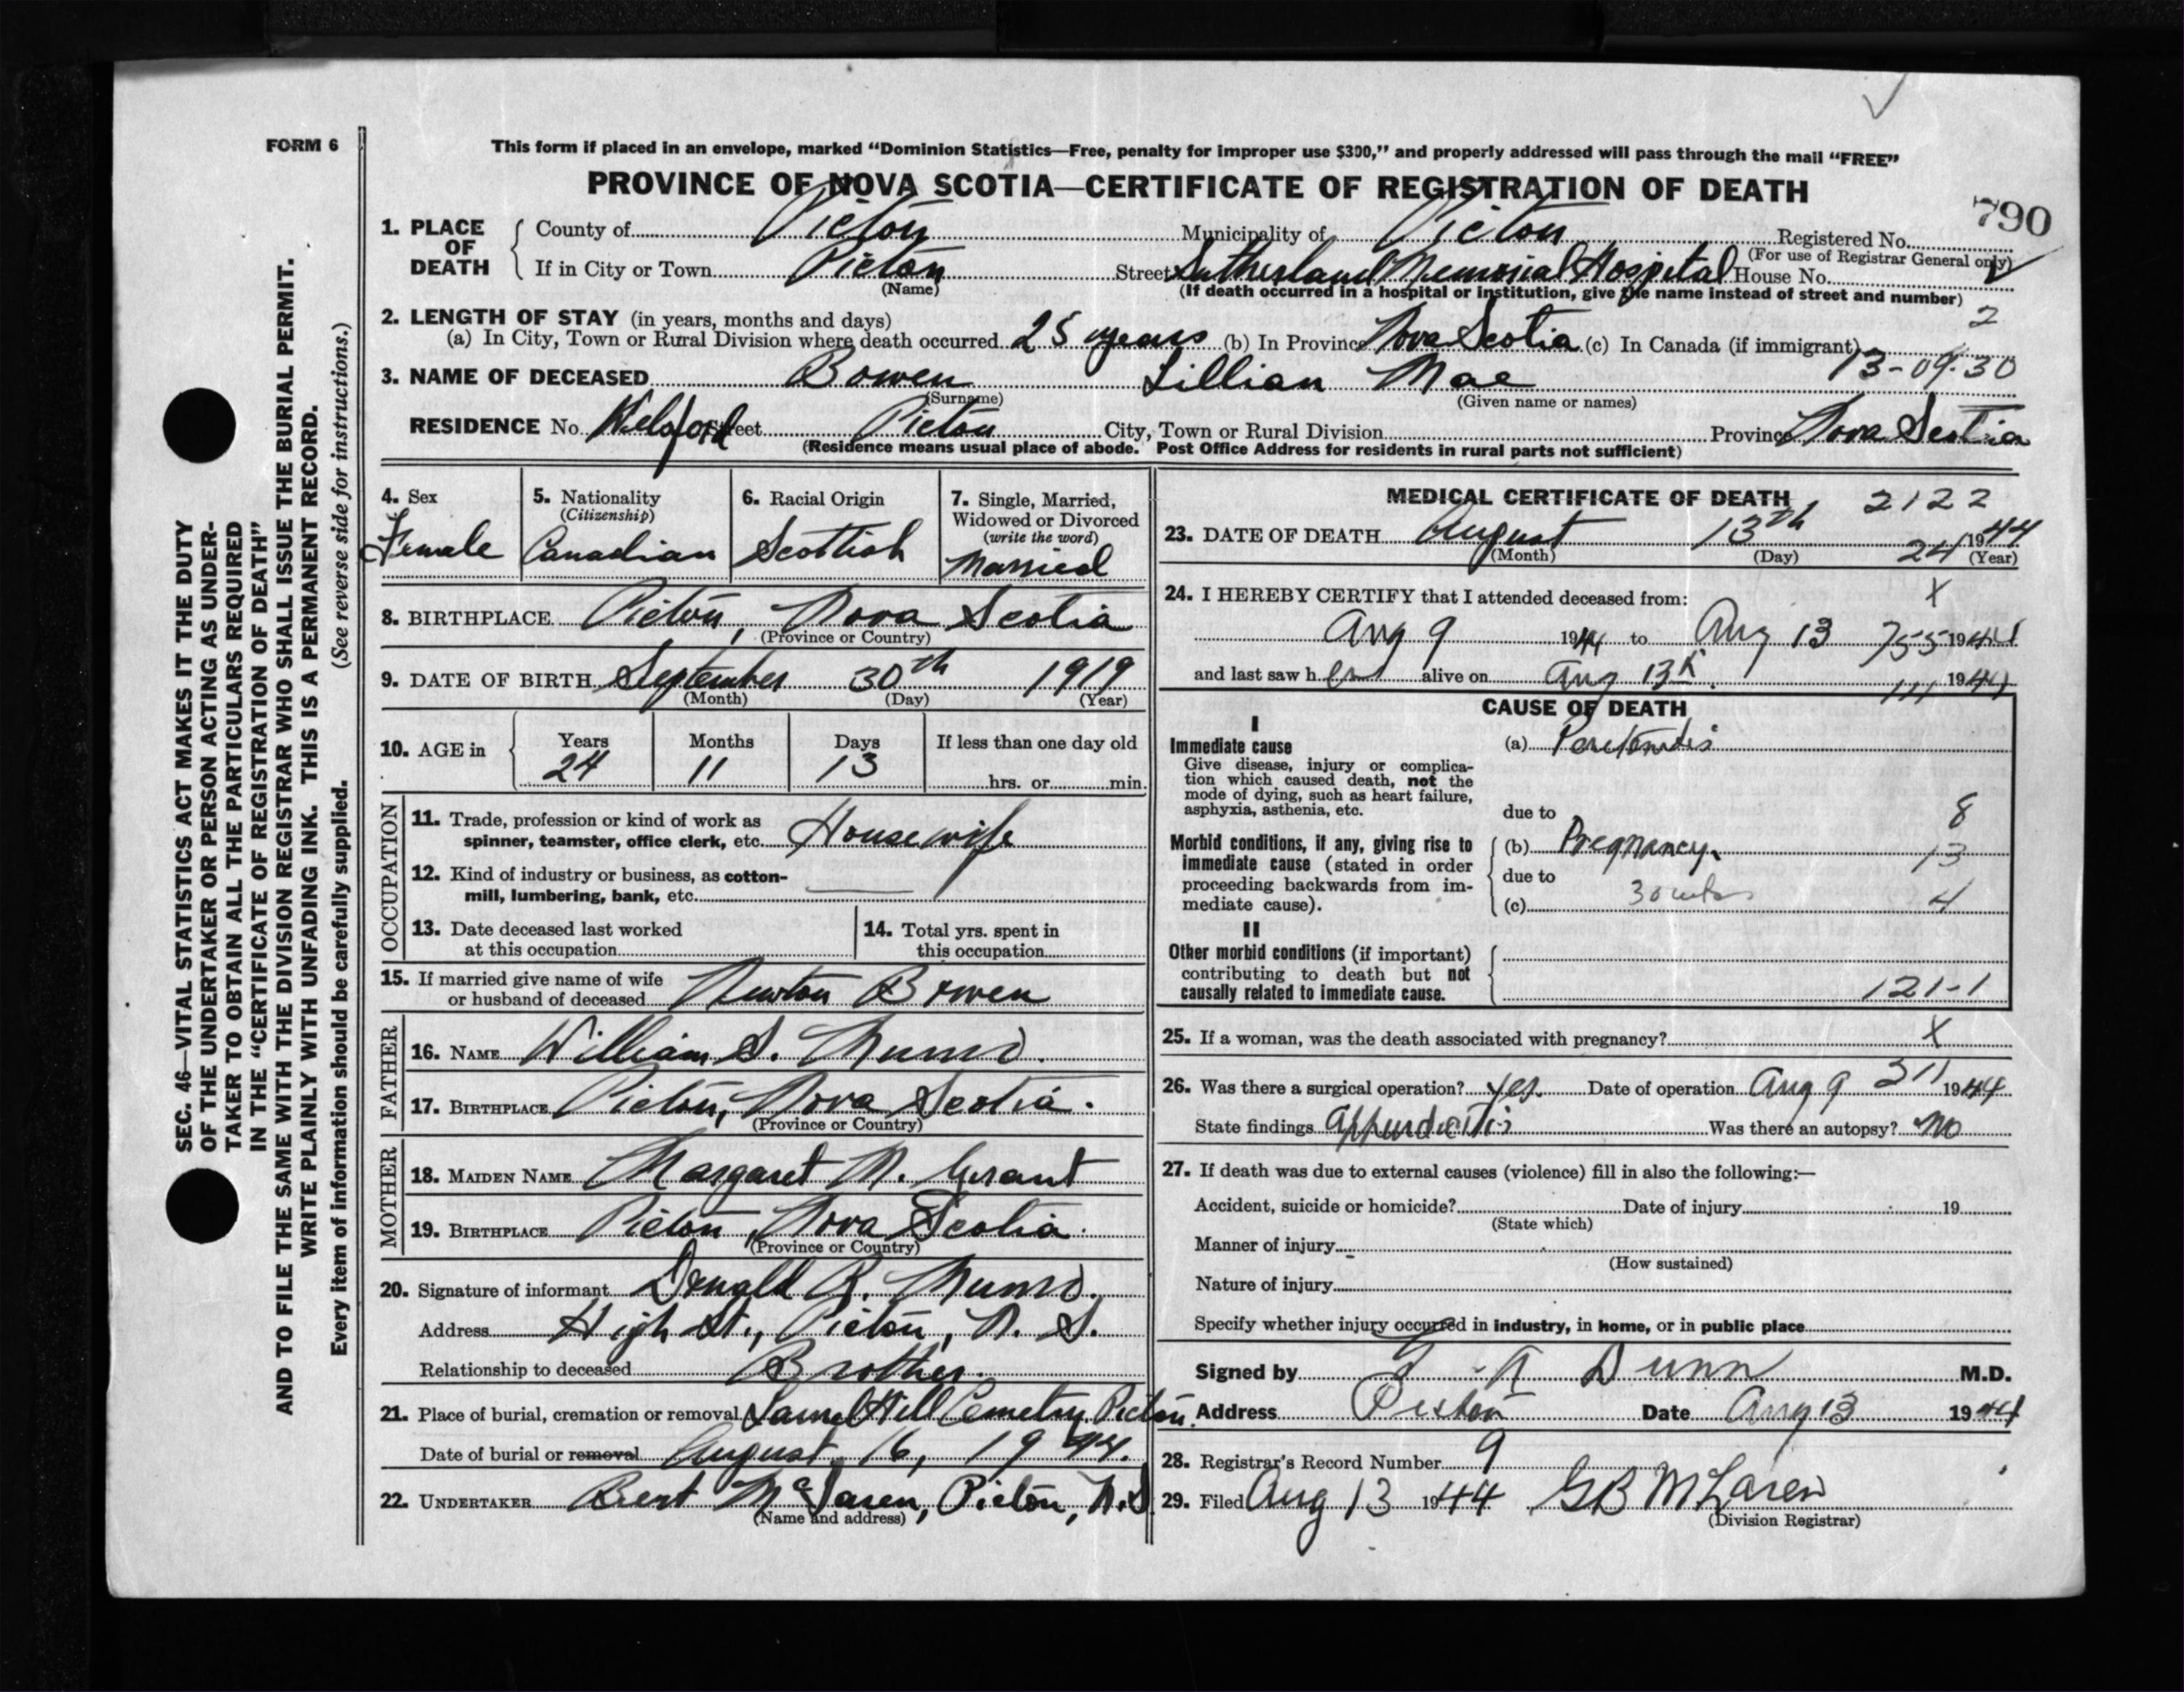 FORM 6
SEC. 46—VITAL STATISTICS ACT MAKES IT THE DUTY
OF THE UNDERTAKER OR PERSON ACTING AS UNDER-
TAKER TO OBTAIN ALL THE PARTICULARS REQUIRED
IN THE "CERTIFICATE OF REGISTRATION OF DEATH"
AND TO FILE THE SAME WITH THE DIVISION REGISTRAR WHO SHALL ISSUE THE BURIAL PERMIT.
WRITE PLAINLY WITH UNFADING INK. THIS IS A PERMANENT RECORD.
Every item of information should be carefully supplied. (See reverse side for instructions.)
This form if placed in an envelope, marked "Dominion Statistics—Free, penalty for improper use $300," and properly addressed will pass through the mail "FREE"
PROVINCE OF NOVA SCOTIA—CERTIFICATE OF REGISTRATION OF DEATH
790
1. PLACE OF DEATH
County of Pictou Municipality of Pictou Registered No.
(For use of Registrar General only)
If in City or Town Pictou Street Sutherland Memorial Hospital House No.
(Name) (If death occurred in a hospital or institution, give the name instead of street and number)
2. LENGTH OF STAY (in years, months and days) 2
(a) In City, Town or Rural Division where death occurred 25 years (b) In Province Nova Scotia (c) In Canada (if immigrant)
3. NAME OF DECEASED Bowen Lillian Mae 13-09-30
(Surname) (Given name or names)
RESIDENCE No. Welsford Street Pictou City, Town or Rural Division Province Nova Scotia
(Residence means usual place of abode. Post Office Address for residents in rural parts not sufficient)
4. Sex
Female
5. Nationality
(Citizenship)
Canadian
6. Racial Origin
Scottish
7. Single, Married,
Widowed or Divorced
(write the word)
Married
8. BIRTHPLACE Pictou, Nova Scotia
(Province or Country)
9. DATE OF BIRTH September 30th 1919
(Month) (Day) (Year)
10. AGE in Years Months Days If less than one day old
24 11 13 hrs. or min.
OCCUPATION
11. Trade, profession or kind of work as
spinner, teamster, office clerk, etc. Housewife
12. Kind of industry or business, as cotton-
mill, lumbering, bank, etc.
13. Date deceased last worked
at this occupation
14. Total yrs. spent in
this occupation
15. If married give name of wife
or husband of deceased Newton Bowen
FATHER
16. NAME William S. Munro.
17. BIRTHPLACE Pictou, Nova Scotia.
(Province or Country)
MOTHER
18. MAIDEN NAME Margaret M. Grant
19. BIRTHPLACE Pictou, Nova Scotia.
(Province or Country)
20. Signature of informant Donald R. Munro.
Address High St., Pictou, N. S.
Relationship to deceased Brother.
21. Place of burial, cremation or removal Laurel Hill Cemetry, Pictou.
Date of burial or removal August 16, 1944.
22. UNDERTAKER Bert McLaren, Pictou, N.S
(Name and address)
MEDICAL CERTIFICATE OF DEATH 2122
23. DATE OF DEATH August 13th 1944
(Month) (Day) 24 (Year)
24. I HEREBY CERTIFY that I attended deceased from: X
Aug 9 1944 to Aug 13 755 1944
and last saw her alive on Aug 13th. 111 1944
CAUSE OF DEATH
I
Immediate cause
Give disease, injury or complica-
tion which caused death, not the
mode of dying, such as heart failure,
asphyxia, asthenia, etc.
(a) Peritonitis
due to 8
Morbid conditions, if any, giving rise to
immediate cause (stated in order
proceeding backwards from im-
mediate cause).
(b) Pregnancy. 13
due to
(c) 30 wks 4
II
Other morbid conditions (if important)
contributing to death but not
causally related to immediate cause.
121-1
25. If a woman, was the death associated with pregnancy? X
26. Was there a surgical operation? yes. Date of operation Aug 9 211 1944
State findings Appendicitis Was there an autopsy? No
27. If death was due to external causes (violence) fill in also the following:—
Accident, suicide or homicide? Date of injury 19
(State which)
Manner of injury
(How sustained)
Nature of injury
Specify whether injury occurred in industry, in home, or in public place
Signed by Dunn M.D.
Address Pictou Date Aug 13 1944
28. Registrar's Record Number 9
29. Filed Aug 13 1944 GB McLaren
(Division Registrar)